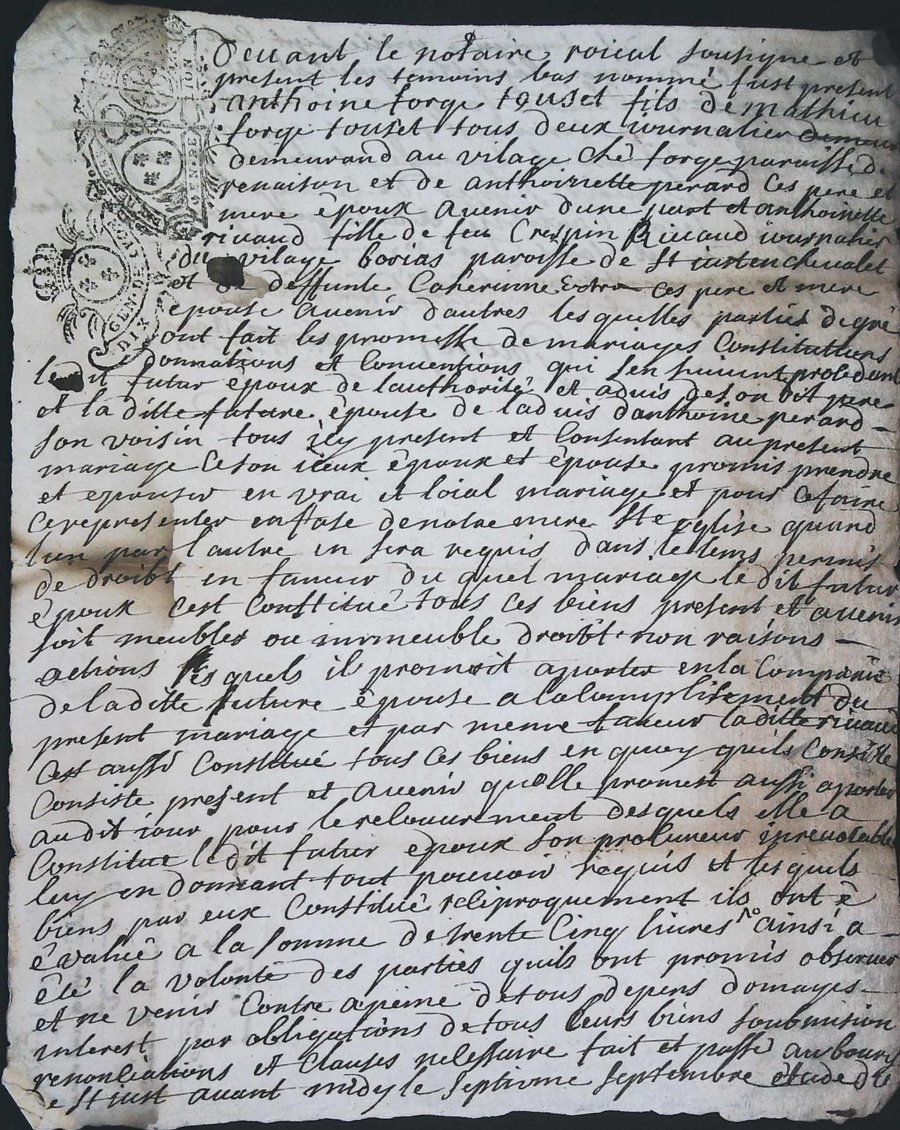 Devant le notaire roieal sousigne et
present les temoins bas nommé fust present
anthoine forge touset fils de mathieu
forge touset tous deux iournalier
demeurand au vilage ché forge paroisse de
renaison et de anthoinette perard ces pere et
mere époux avenir dune part et anthoinette
rivaud fille de feu Crespin Rivaud iournalier
du vilage borias paroisse de St iust en chevalet
et de deffunte Catherinne ces pere et mere
epouse avenir d'autres lesquelles parties de gré
ont fait les promesse de mariages Constitutions
Donnations et Conventions qui sensuivent procedant
ledit futur époux de l'authorité et aduis de son dit pere
et la ditte future épouse de laduis danthoine perard
son voisin tous icy present et Consentant au present
mariage Ce son iceux époux et épouse promis prendre
et epouser en vrai et loial mariage et pour ce faire
ce representer enfase de notre mere Ste eglise quand
lun par l'autre en sera requis dans le tems permis
de droibt en faveur du quel mariage le dit futur
époux cest Constitué tous ces biens present et avenir
soit meubles ou immeuble droibt non raisons
actions lesquels il promest aporter en la Compagnie
de la ditte future épouse a lacomplisement du
present mariage et par meme faveur laditte rivaud
Cest aussi Constitué tous ces biens en quoy quils Consiste
Consiste present et avenir quelle promest aussi aporter
audit iour pour le recouvrement desquels elle a
Constitué le dit futur epoux son procureur irrevocable
luy en donnant tout pouvoir requis et lesquels
biens par eux Constitué reciproquement ils ont é
évalué a la somme de trente Cinq livres ainsi a
été la volonté des parties quils ont promis observer
et ne venir Contre apeine de tous depens domages
interest par obligations de tous leurs biens soubmision
renonciations et Clauses nessessaire fait et passé au bourg
de St iust avant midy le septieme septembre
GEN DE
DIX
GENERAL